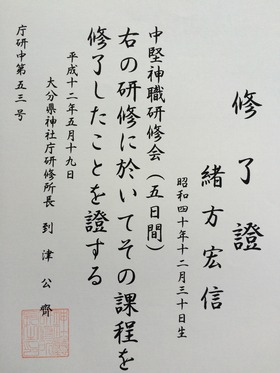 修了證
緒方宏信
昭和四十年十二月三十日生
中堅神職研修会(五日間)
右の研修に於いてその課程を
修了したことを證する
平成十二年五月十九日
大分県神社庁研修所長 到津公齊
庁研中第五三号